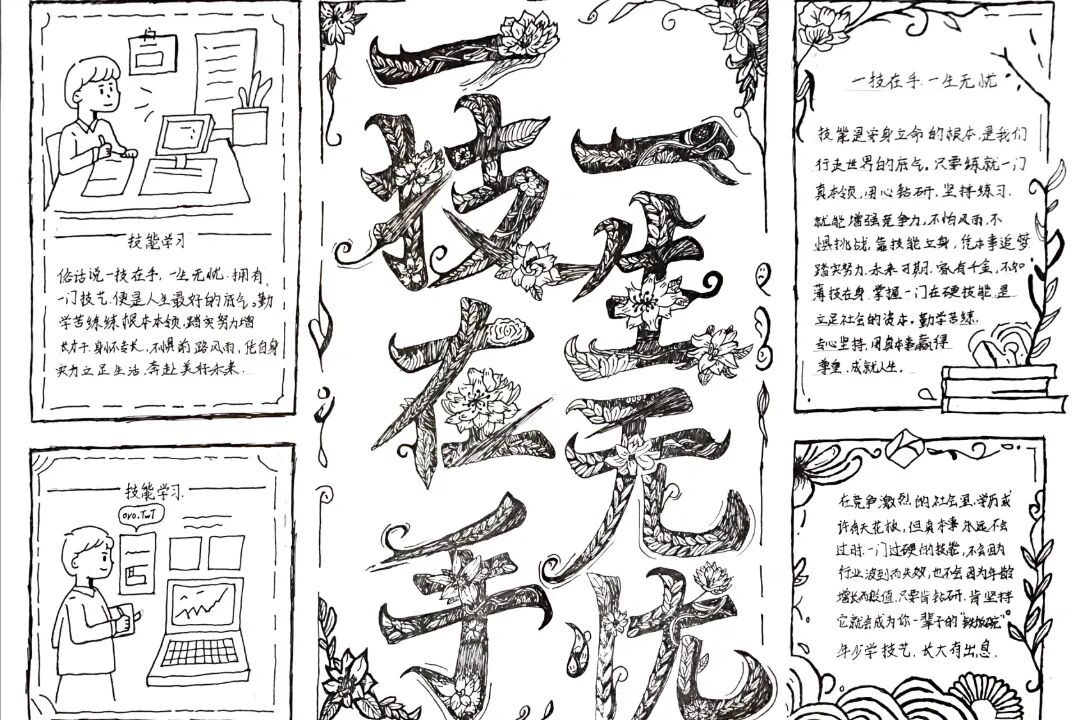 技能学习
俗话说一技在手,一生无忧.拥有
一门技艺,便是人生最好的底气。勤
学苦练练根本本领,踏实努力增
长才干,身怀长,不惧前路风雨,凭自身
实力立足生活,奔赴美好未来.
技能学习.
oyo.TwT
一技在手
一生无忧
一技在手.一生无忧
技能是安身立命的根本,是我们
行走世界的底气,只要练就一门
真本领,用心钻研,坚持练习.
就能增强竞争力,不怕风雨,不
惧挑战,靠技能立身,凭本事追梦
踏实努力,未来可期.家有千金,不如
薄技在身.掌握一门在硬技能,是
立足社会的资本,勤学苦练.
专心坚持,用真本事赢得
尊重.成就人生.
在竞争激烈的社会里.学历或
许有天花板,但真本事永远不会
过时.一门过硬的技能,不会因
行业波到而失效,也不会因为年龄
增长而贬值.只要肯钻研.肯坚持
它就会成为你一辈子的"铁饭碗"
年少学技艺,长大有出息.